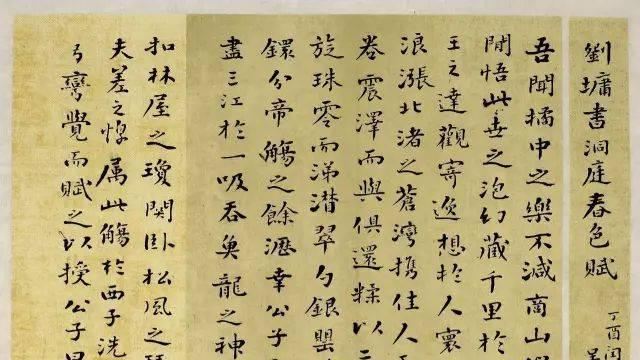 劉墉書洞庭春色賦
丁酉閏
吾聞橘中之樂不減商山
閒悟此世之泡幻藏千里於
王之達觀寄逸想於人寰
浪漲北渚之蒼灣攜佳人
卷震澤而與俱還糅以二
旋珠零而涕潸翠勺銀罌
鐶分帝觴之餘瀝幸公子
盡三江於一吸吞魚龍之神
扣林屋之瓊關卧松風之
夫差之惸属此觴於西子洗
弓彎覺而賦之以授公子曰